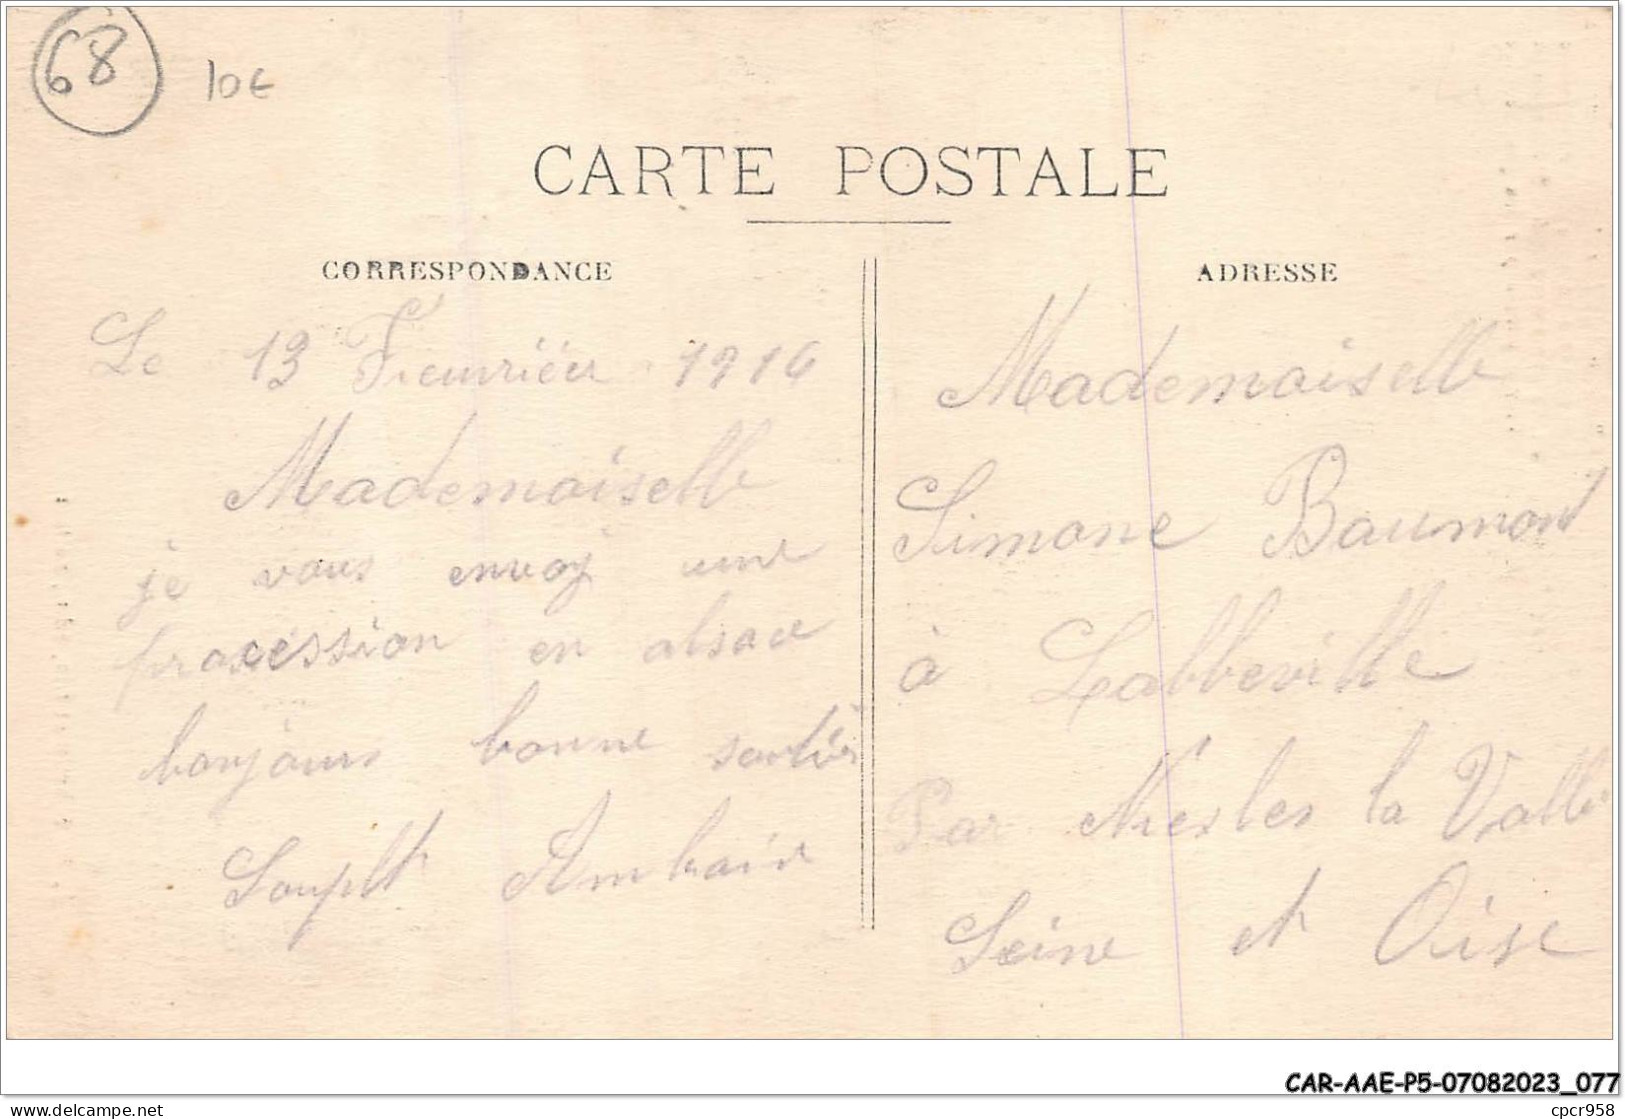 68 10€
CARTE POSTALE
CORRESPONDANCE
Le 13 Feuvriéer 1916
Mademoiselle
je vous envoy une
procession en alsace
bonjours bonne
Souplt Ambroise
ADRESSE
Mademoiselle
Simone Baumont
à Labbeville
Par Nesles la Vallé
Seine et Oise
CAR-AAE-P5-07082023_077
delcampe.net
cpcr958